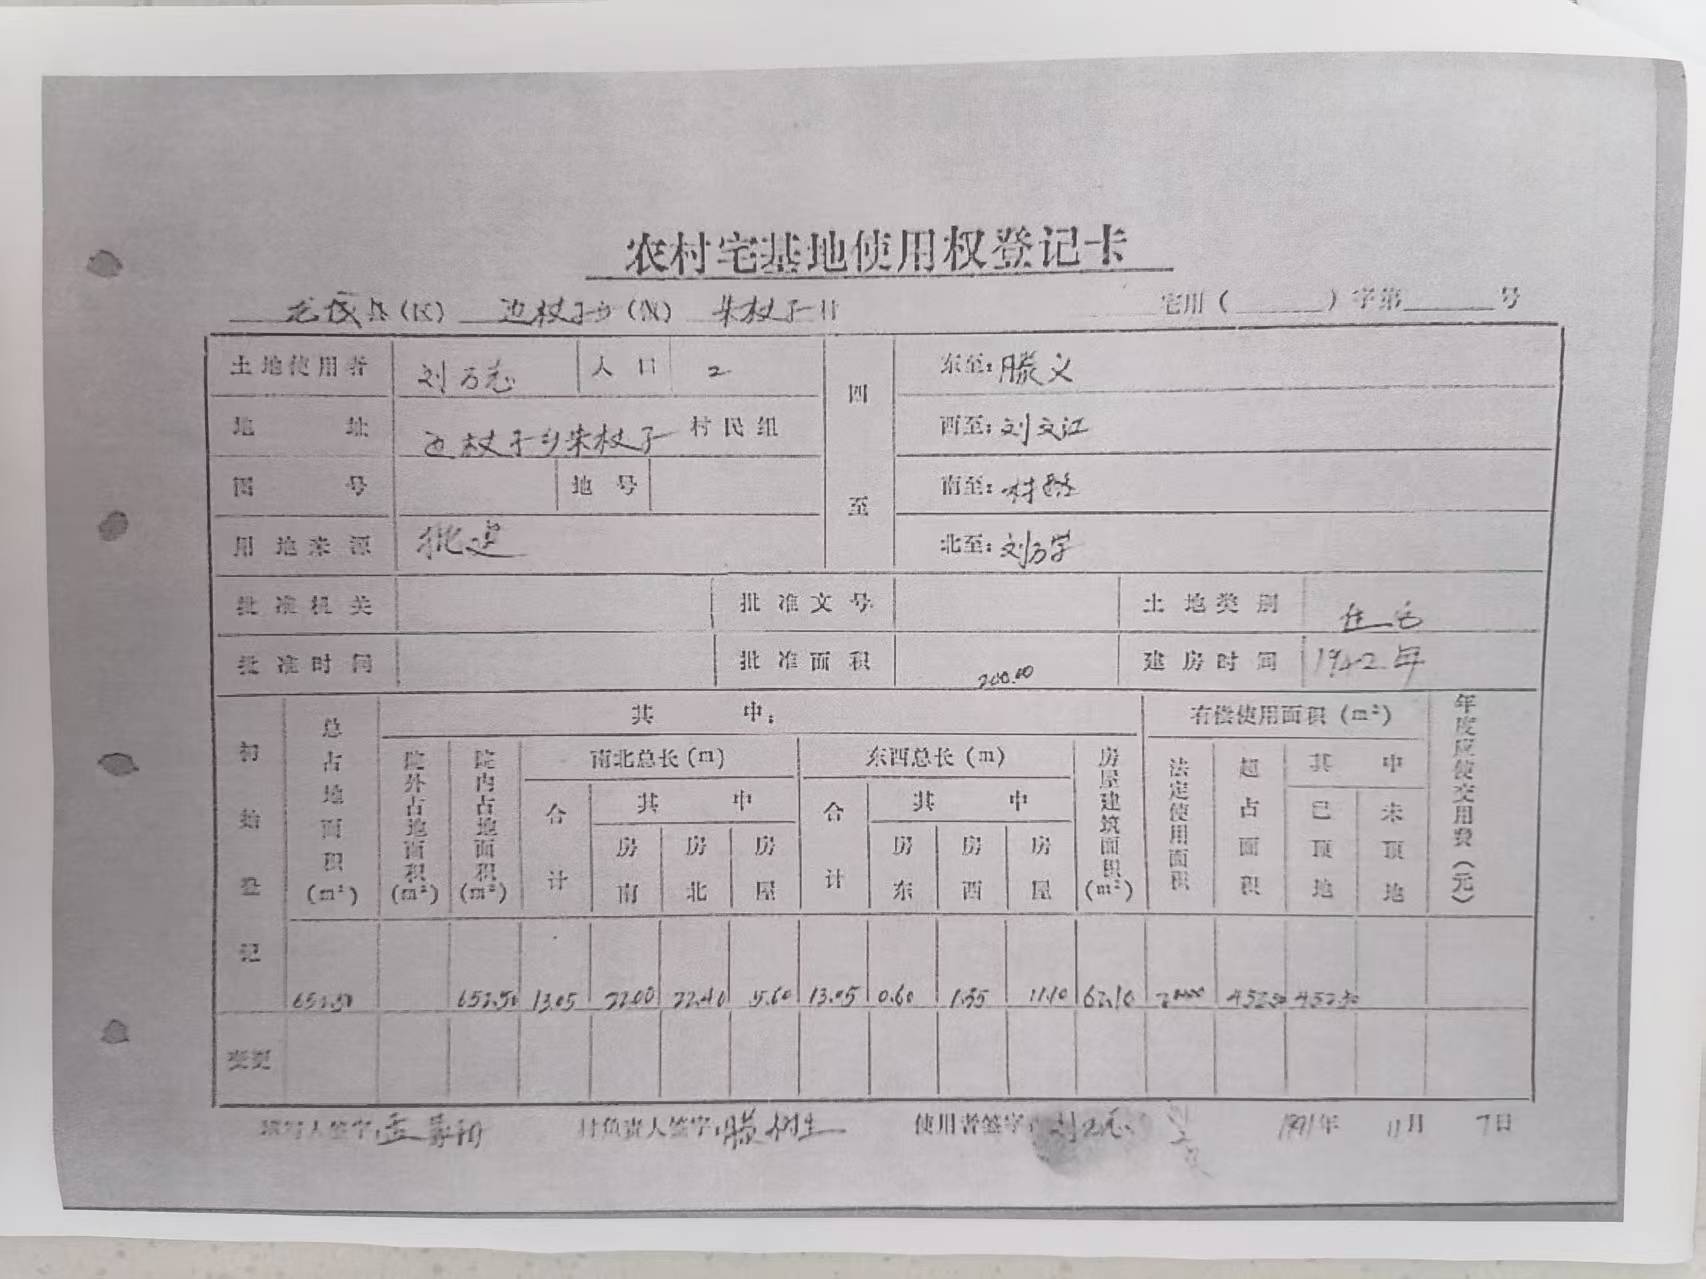 农村宅基地使用权登记卡
县(区) 边杖子乡(镇) 朱杖子村 宅用( )字第 号
土地使用者 刘万志 人口 2 四至 东至：滕义
地址 边杖子乡朱杖子村民组 西至：刘文江
图号 地号 南至：村路
用地来源 批建 北至：刘万学
批准机关 批准文号 土地类别 住宅
批准时间 批准面积 200.00 建房时间 年
初始登记 总占地面积(m²) 其中： 有偿使用面积(m²) 年度应使交用费(元)
院外占地面积(m²) 院内占地面积(m²) 南北总长(m) 东西总长(m) 房屋建筑面积(m²) 法定使用面积 超占面积 其中
合计 其中 合计 其中 已顶地 未顶地
房南 房北 房屋 房东 房西 房屋
652.50 652.50 13.05 22.00 22.40 5.60 13.05 0.60 1.35 11.10 62.16 452.50 452.50
变更
填写人签字： 村负责人签字：滕树生 使用者签字：刘万志 1991年 11月 7日